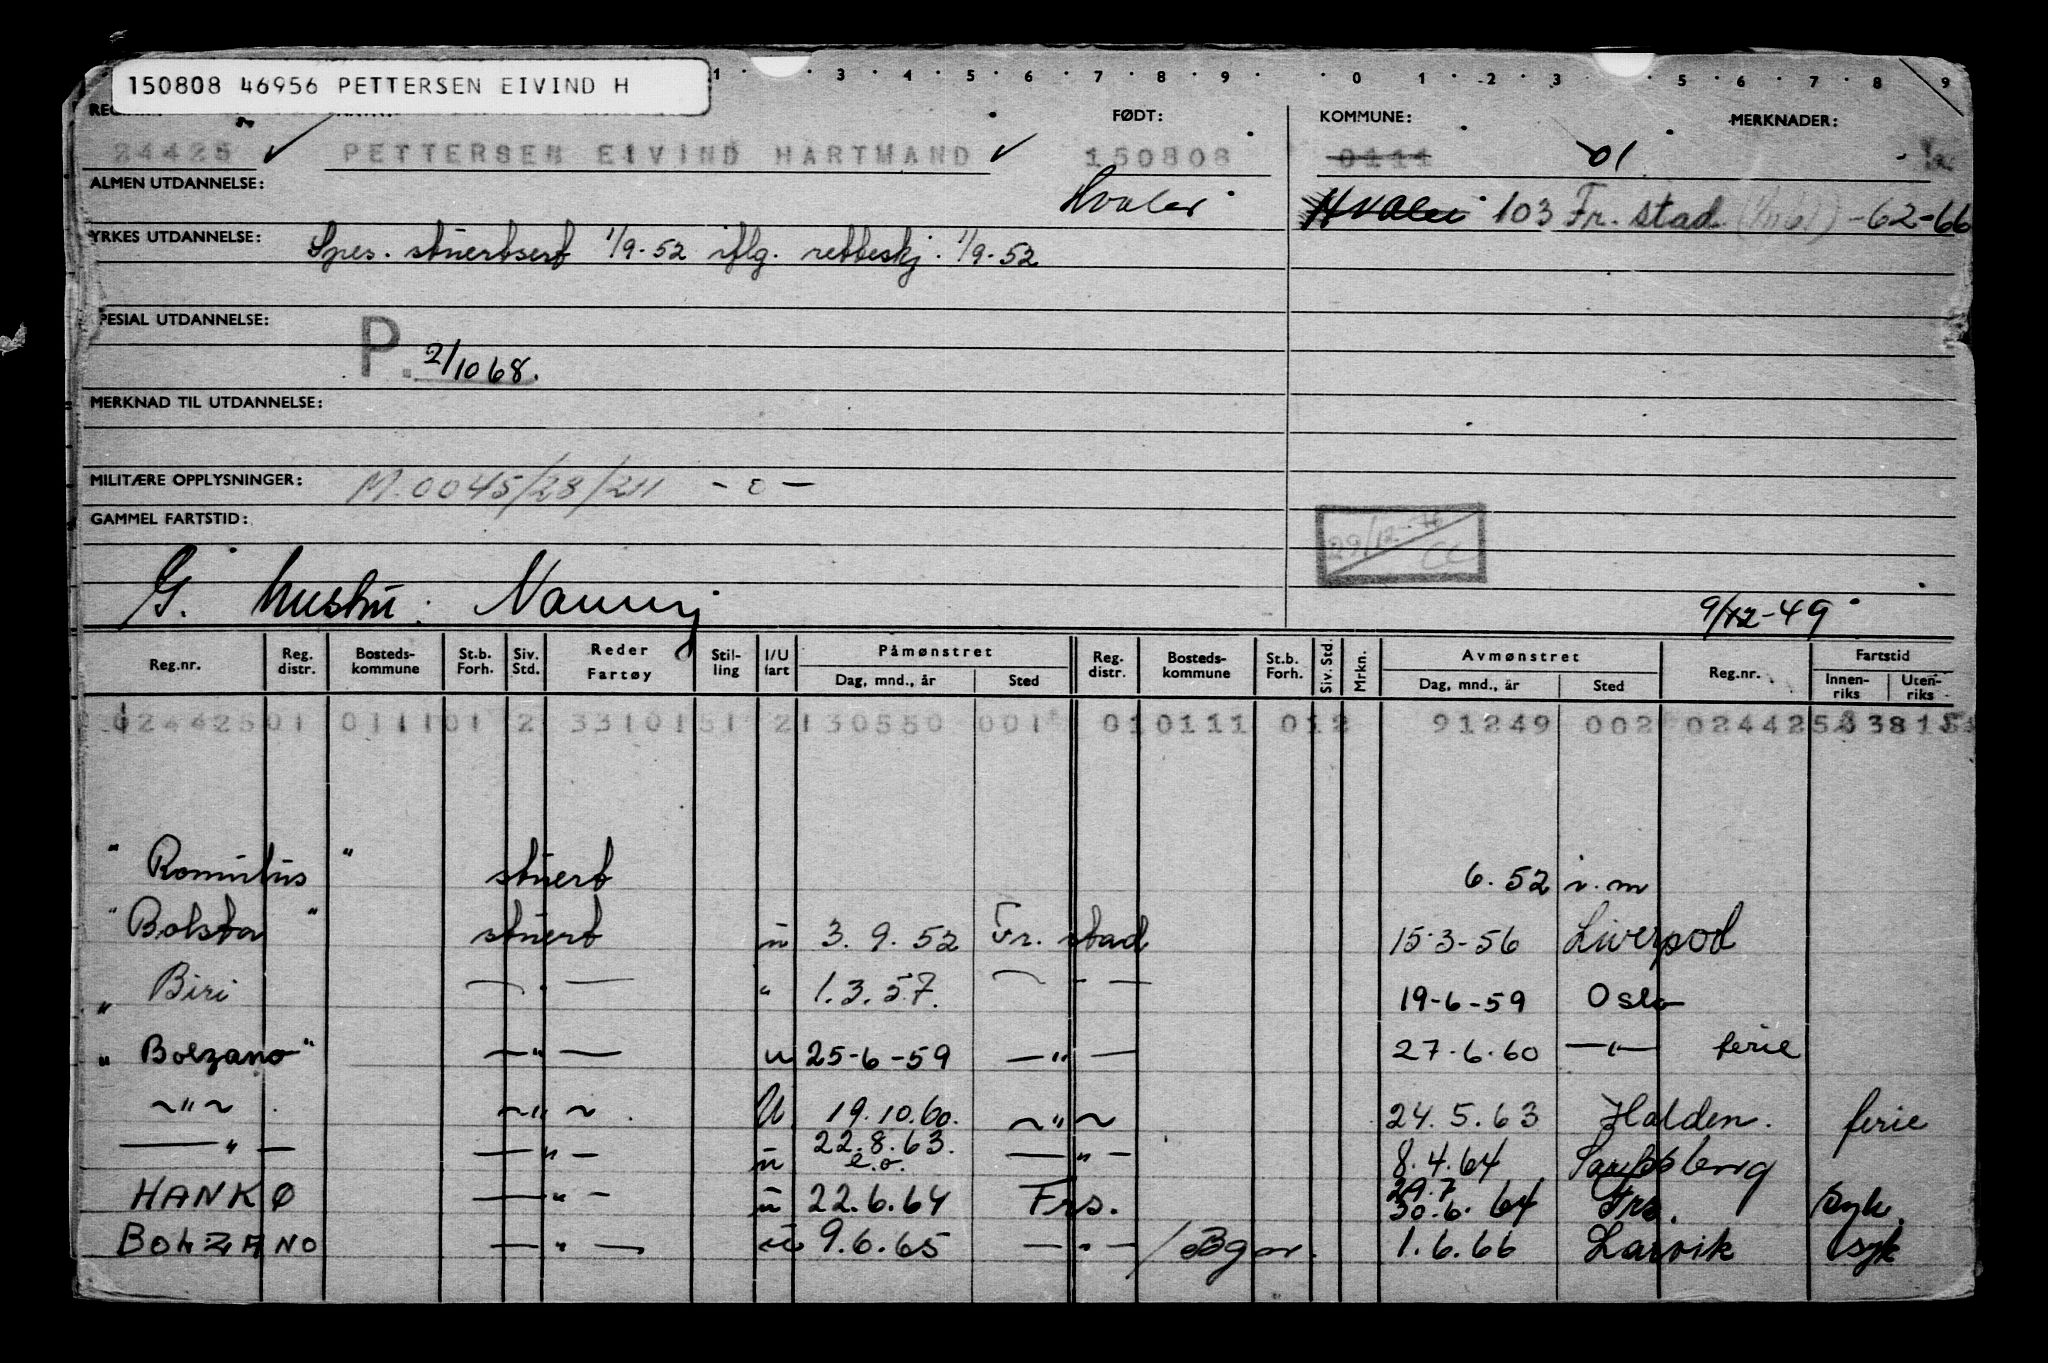 150808 46956 PETTERSEN EIVIND H
1 · · 3 · 4 · 5 · 6 · 7 · 8 · 9 · · 0 · 1 · 2 · 3 · 5 · 6 · 7 · 8 · 9
FØDT: KOMMUNE: MERKNADER:
24425 ✓ PETTERSEN EIVIND HARTMAND ✓ 150808 0111 01
ALMEN UTDANNELSE: Hvaler Hvaler 103 Fr. stad -62-66
YRKES UTDANNELSE: Spes. stuertsert 1/9-52 iflg. retteskj. 1/9-52
PESIAL UTDANNELSE: P. 2/10 68.
MERKNAD TIL UTDANNELSE:
MILITÆRE OPPLYSNINGER: M.0045/28/211 - o -
GAMMEL FARTSTID:
G. hustru: 9/12-49
Reg.nr. Reg. distr. Bosteds- kommune St.b. Forh. Siv. Std. Reder Fartøy Stil- ling I/U fart Påmønstret Dag, mnd., år Sted Reg. distr. Bosteds- kommune St.b. Forh. Siv. Std. Mrkn. Avmønstret Dag, mnd., år Sted Reg.nr. Fartstid Innen- riks Uten- riks
02442501 011101 2 3310151 2130550 001 010111 012 91249 002 024425
"Romulus" stuert 6.52 i.m
"Bolsta" stuert u 3.9.52 Fr. stad 15-3-56 Liverpool
" Biri — " — " 1.3.57. — " — 19-6-59 Oslo
" Bolzano" —"— u 25-6-59 —"— 27.6.60 —"— ferie
~"~ ~"~ U 19.10.60. ~"~ 24.5.63 Halden. ferie
—"— —"— u 22.8.63. e.o. —"— 8.4.64 Sarpsborg
HANKØ —"— u 22.6.64 Frs. 29.7 30.6.64 Frs. syk.
BOLZANO —"— u 9.6.65 —"— / Bgn. 1.6.66 Larvik syk